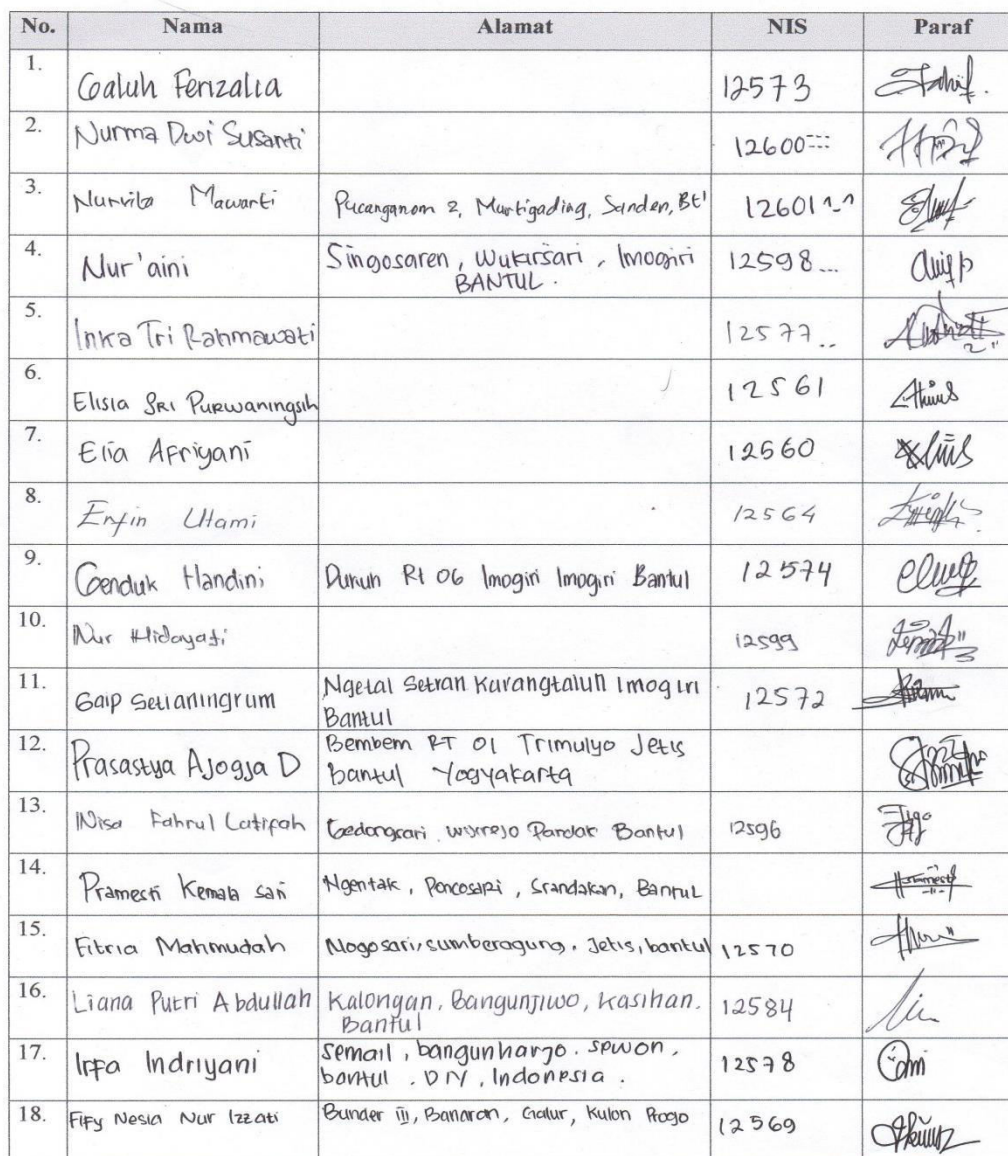 No. Nama Alamat NIS Paraf
1. Galuh Ferizalia 12573
2. Nurma Dwi Susanti 12600
3. Nurvita Mawarti Pucanganom 2, Murtigading, Sanden, Btl 12601
4. Nur'aini Singosaren, Wukirsari, Imogiri 12598
BANTUL.
5. Inka Tri Rahmawati 12577
6. Elisia SRI Purwaningsih 12561
7. Elia Afriyani 12560
8. Enfin Utami 12564
9. Genduk Handini Dunuh Rt 06 Imogiri Imogiri Bantul 12574
10. Nur Hidayati 12599
11. Gaip Setianingrum Ngetal Setran Karangtalun Imogiri 12572
Bantul
12. Prasastya Ajogja D Bembem RT 01 Trimulyo Jetis
bantul Yogyakarta
13. Nisa Fahrul Latifah Gedongsari Pandak Bantul 12596
14. Pramesti Kemala sari Ngentak, Poncosari, Srandakan, Bantul
15. Fitria Mahmudah Nogosari, sumberagung, Jetis, bantul 12570
16. Liana Putri Abdullah Kalongan, Bangunjiwo, Kasihan. 12584
Bantul
17. Irfa Indriyani Semail, bangunharjo. sewon, 12578
bantul. DIY, Indonesia.
18. Fify Nesia Nur Izzati Bunder III, Banaran, Galur, Kulon Progo 12569